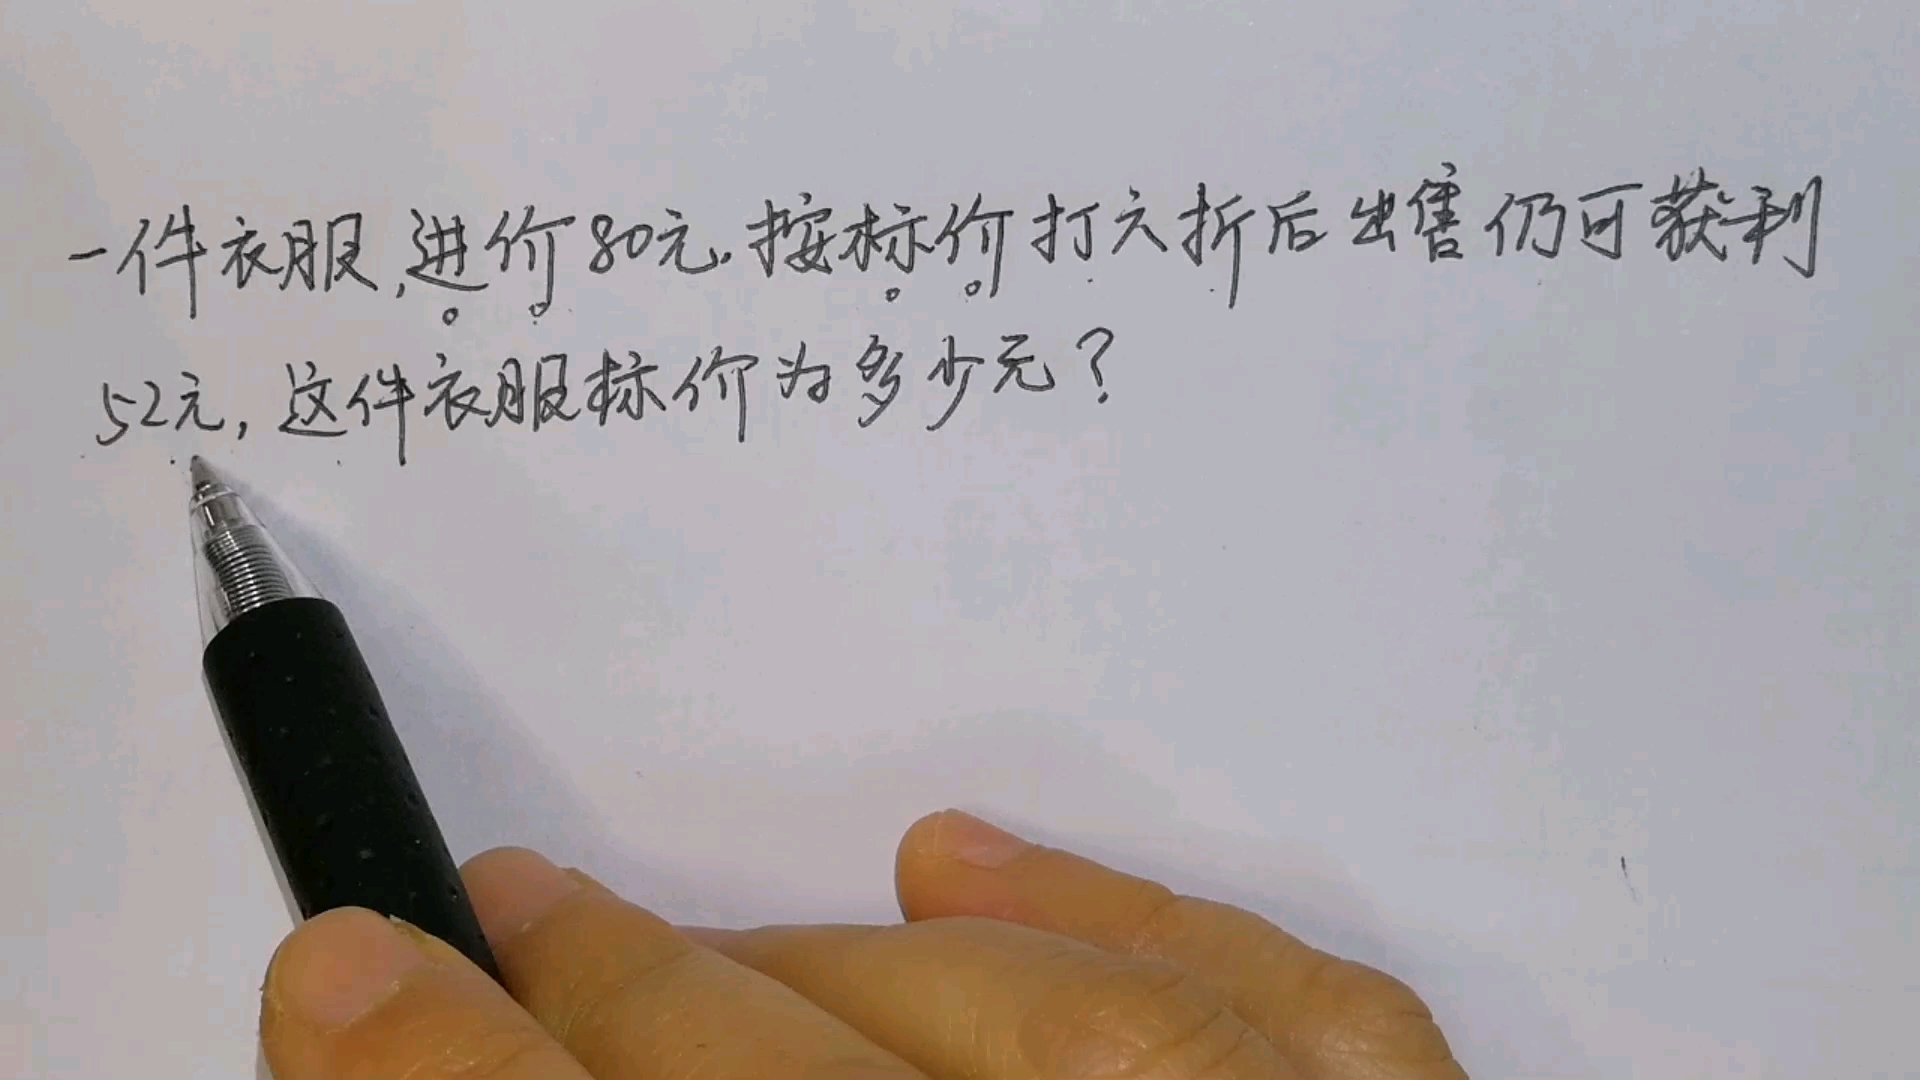 一件衣服,进价80元.按标价打六折后出售仍可获利
52元,这件衣服标价为多少元?